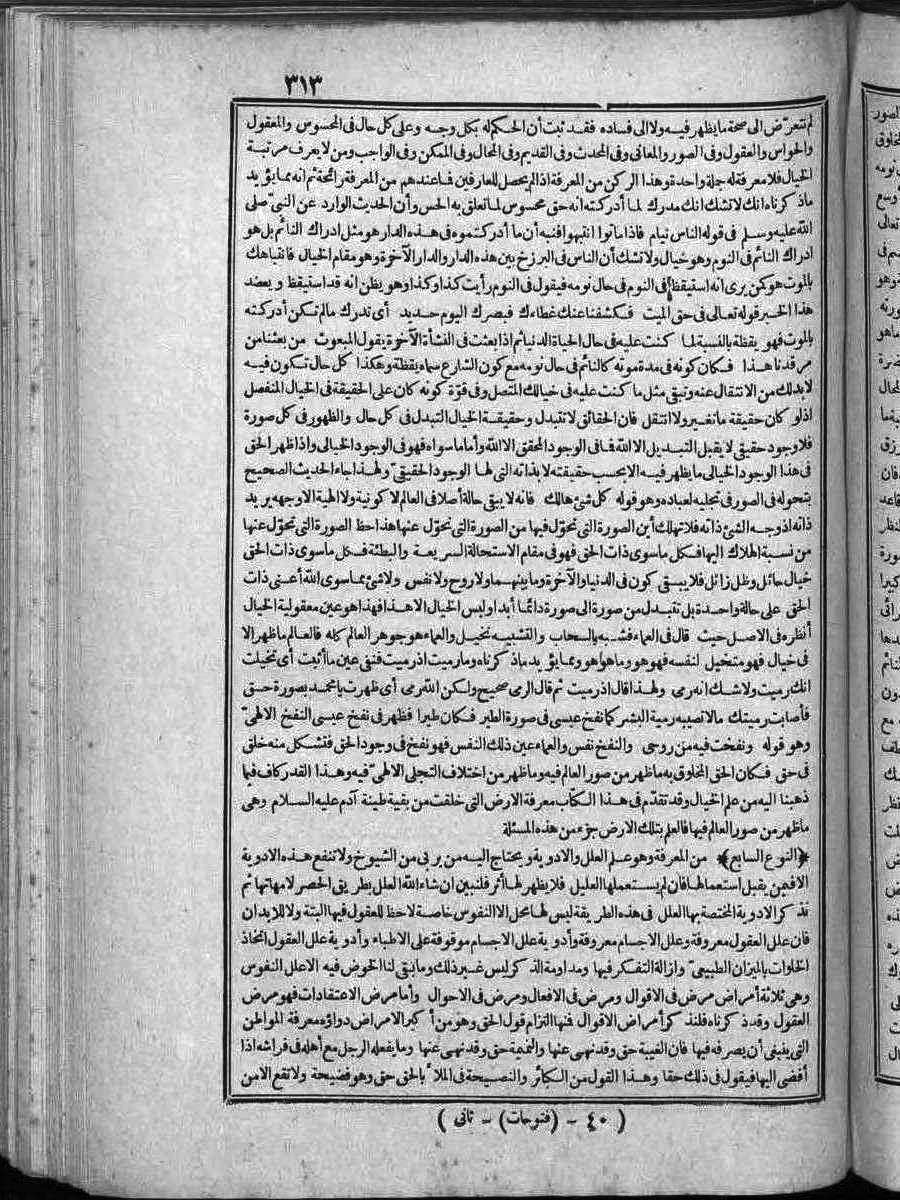 ٣١٣
لم تتعرّض الى صحة ما يظهر فيه ولا الى فساده فقد ثبت أن الحكم له بكل وجه وعلى كل حال فى المحسوس والمعقول
والحواس والعقول وفى الصور والمعانى وفى المحدث وفى القديم وفى المحال وفى الممكن وفى الواجب ومن لا يعرف مرتبة
الخيال فلا معرفة له جلة واحدة وهذا الركن من المعرفة اذا لم يحصل للعارفين فما عندهم من المعرفة رائحة ثم انه مما يؤيد
ماذكرناه انك لا تشك انك مدرك لما أدركته انه حق محسوس لما تعلق به الحس وأن الحديث الوارد عن النبى صلى
الله عليه وسلم فى قوله الناس نيام فاذا ماتوا انتبهوا فنبه أن ما أدركتموه فى هذه الدار هو مثل ادراك النائم بل هو
ادراك النائم فى النوم وهو خيال ولا تشك أن الناس فى البرزخ بين هذه الدار والدار الآخرة وهو مقام الخيال فانتباهك
بالموت هو كمن يرى انه استيقظ فى النوم فى حال نومه فيقول فى النوم رأيت كذا وكذا وهو يظن انه قد استيقظ ويعضد
هذا الخبر قوله تعالى فى حق الميت فكشفنا عنك غطاءك فبصرك اليوم حديد أى تدرك مالم تكن أدركته
بالموت فهو يقظة بالنسبة لما كنت عليه فى حال الحياة الدنيا ثم اذا بعثت فى النشأة الآخرة يقول المبعوث من بعثنا من
مرقدنا هذا فكان كونه فى مدة موته كالنائم فى حال نومه مع كون الشارع سماه يقظة وهكذا كل حال تكون فيه
لا بدلك من الانتقال عنه وتبقى مثل ما كنت عليه فى خيالك المتصل وفى قوّة كونه كان على الحقيقة فى الخيال المنفصل
اذلو كان حقيقة ما تغير ولا انتقل فان الحقائق لا تتبدل وحقيقة الخيال التبدل فى كل حال والظهور فى كل صورة
فلا وجود حقيقى لا يقبل التبديل الا الله فما فى الوجود المحقق الا الله وأما ما سواه فهو فى الوجود الخيالى واذا ظهر الحق
فى هذا الوجود الخيالى ما يظهر فيه الا بحسب حقيقته لا بذاته التى لها الوجود الحقيقىّ ولهذا جاء الحديث الصحيح
بتحوّله فى الصور فى تجليه لعباده وهو قوله كل شئ هالك فانه لا يبقى حالة أصلا فى العالم لا كونية ولا الهية الا وجهه يريد
ذاته اذ وجه الشئ ذاته فلا تهلك أين الصورة التى تحوّل فيها من الصورة التى تحوّل عنها هذا حظ الصورة التى تحوّل عنها
من نسبة الهلاك اليها فكل ما سوى ذات الحق فهو فى مقام الاستحالة السريعة والبطئة فكل ما سوى ذات الحق
خيال حائل وظل زائل فلا يبقى كون فى الدنيا والآخرة وما بينهما ولا روح ولا نفس ولا شئ مما سوى الله أعنى ذات
الحق على حالة واحدة بل تتبدل من صورة الى صورة دائما أبدا وليس الخيال الا هذا فهذا هو عين معقولية الخيال
أنظره فى الاصل حيث قال فى العماء فشبه بالسحاب والتشبيه تخييل والعماء هو جوهر العالم كله فالعالم ما ظهر الا
فى خيال فهو متخيل لنفسه فهو هو وما هو هو ومما يؤيد ماذكرناه وما رميت اذ رميت فنفى عين ما أثبت أى تخيلت
انك رميت ولا شك انه رمى ولهذا قال اذ رميت ثم قال الرمى صحيح ولكن الله رمى أى ظهرت يا محمد بصورة حق
فأصابت رميتك مالا تصيبه رمية البشر كما نفخ عيسى فى صورة الطير فكان طيرا فظهر فى نفخ عيسى النفخ الالهىّ
وهو قوله ونفخت فيه من روحى والنفخ نفس والعماء عين ذلك النفس فهو نفخ فى وجود الحق فتشكل منه خلق
فى حق فكان الحق المخلوق به ما ظهر من صور العالم فيه وما ظهر من اختلاف التجلى الالهىّ فيه وهذا القدر كاف فيما
ذهبنا اليه من علم الخيال وقد تقدّم فى هذا الكتاب معرفة الارض التى خلقت من بقية طينة آدم عليه السلام وهى
ما ظهر من صور العالم فيها فالعلم بتلك الارض جزء من هذه المسئلة
﴿النوع السابع﴾ من المعرفة وهو علم العلل والادوية ويحتاج اليه من يربى من الشيوخ ولا تنفع هذه الادوية
الا فيمن يقبل استعمالها فان لم يستعملها العليل فلا يظهر لها أثر فلنبين ان شاء الله العلل بطريق الحصر لامهاتها ثم
نذكر الادوية المختصة بها العلل فى هذه الطريقة ليس لها محل الا النفوس خاصة لا حظ للعقول فيها البتة ولا للابدان
فان علل العقول معروفة وعلل الاجسام معروفة وأدوية علل الاجسام موقوفة على الاطباء وأدوية علل العقول اتخاذ
الخلوات بالميزان الطبيعىّ وازالة التفكر فيها ومداومة الذكر ليس غير ذلك وما بقى لنا الخوض فيه الا علل النفوس
وهى ثلاثة أمراض مرض فى الاقوال ومرض فى الافعال ومرض فى الاحوال وأما مرض الاعتقادات فهو مرض
العقول وقد ذكرناه فلنذكر أمراض الاقوال فمنها التزام قول الحق وهو من أكبر الامراض دواؤه معرفة المواطن
التى ينبغى أن يصرفه فيها فان الغيبة حق وقد نهى عنها والنميمة حق وقد نهى عنها وما يفعله الرجل مع أهله فى فراشه اذا
أفضى اليها فيقول فى ذلك حقا وهذا القول من الكبائر والنصيحة فى الملأ بالحق حق وهو فضيحة ولا تقع الا من
( ٤٠ - (فتوحات) - ثانى )